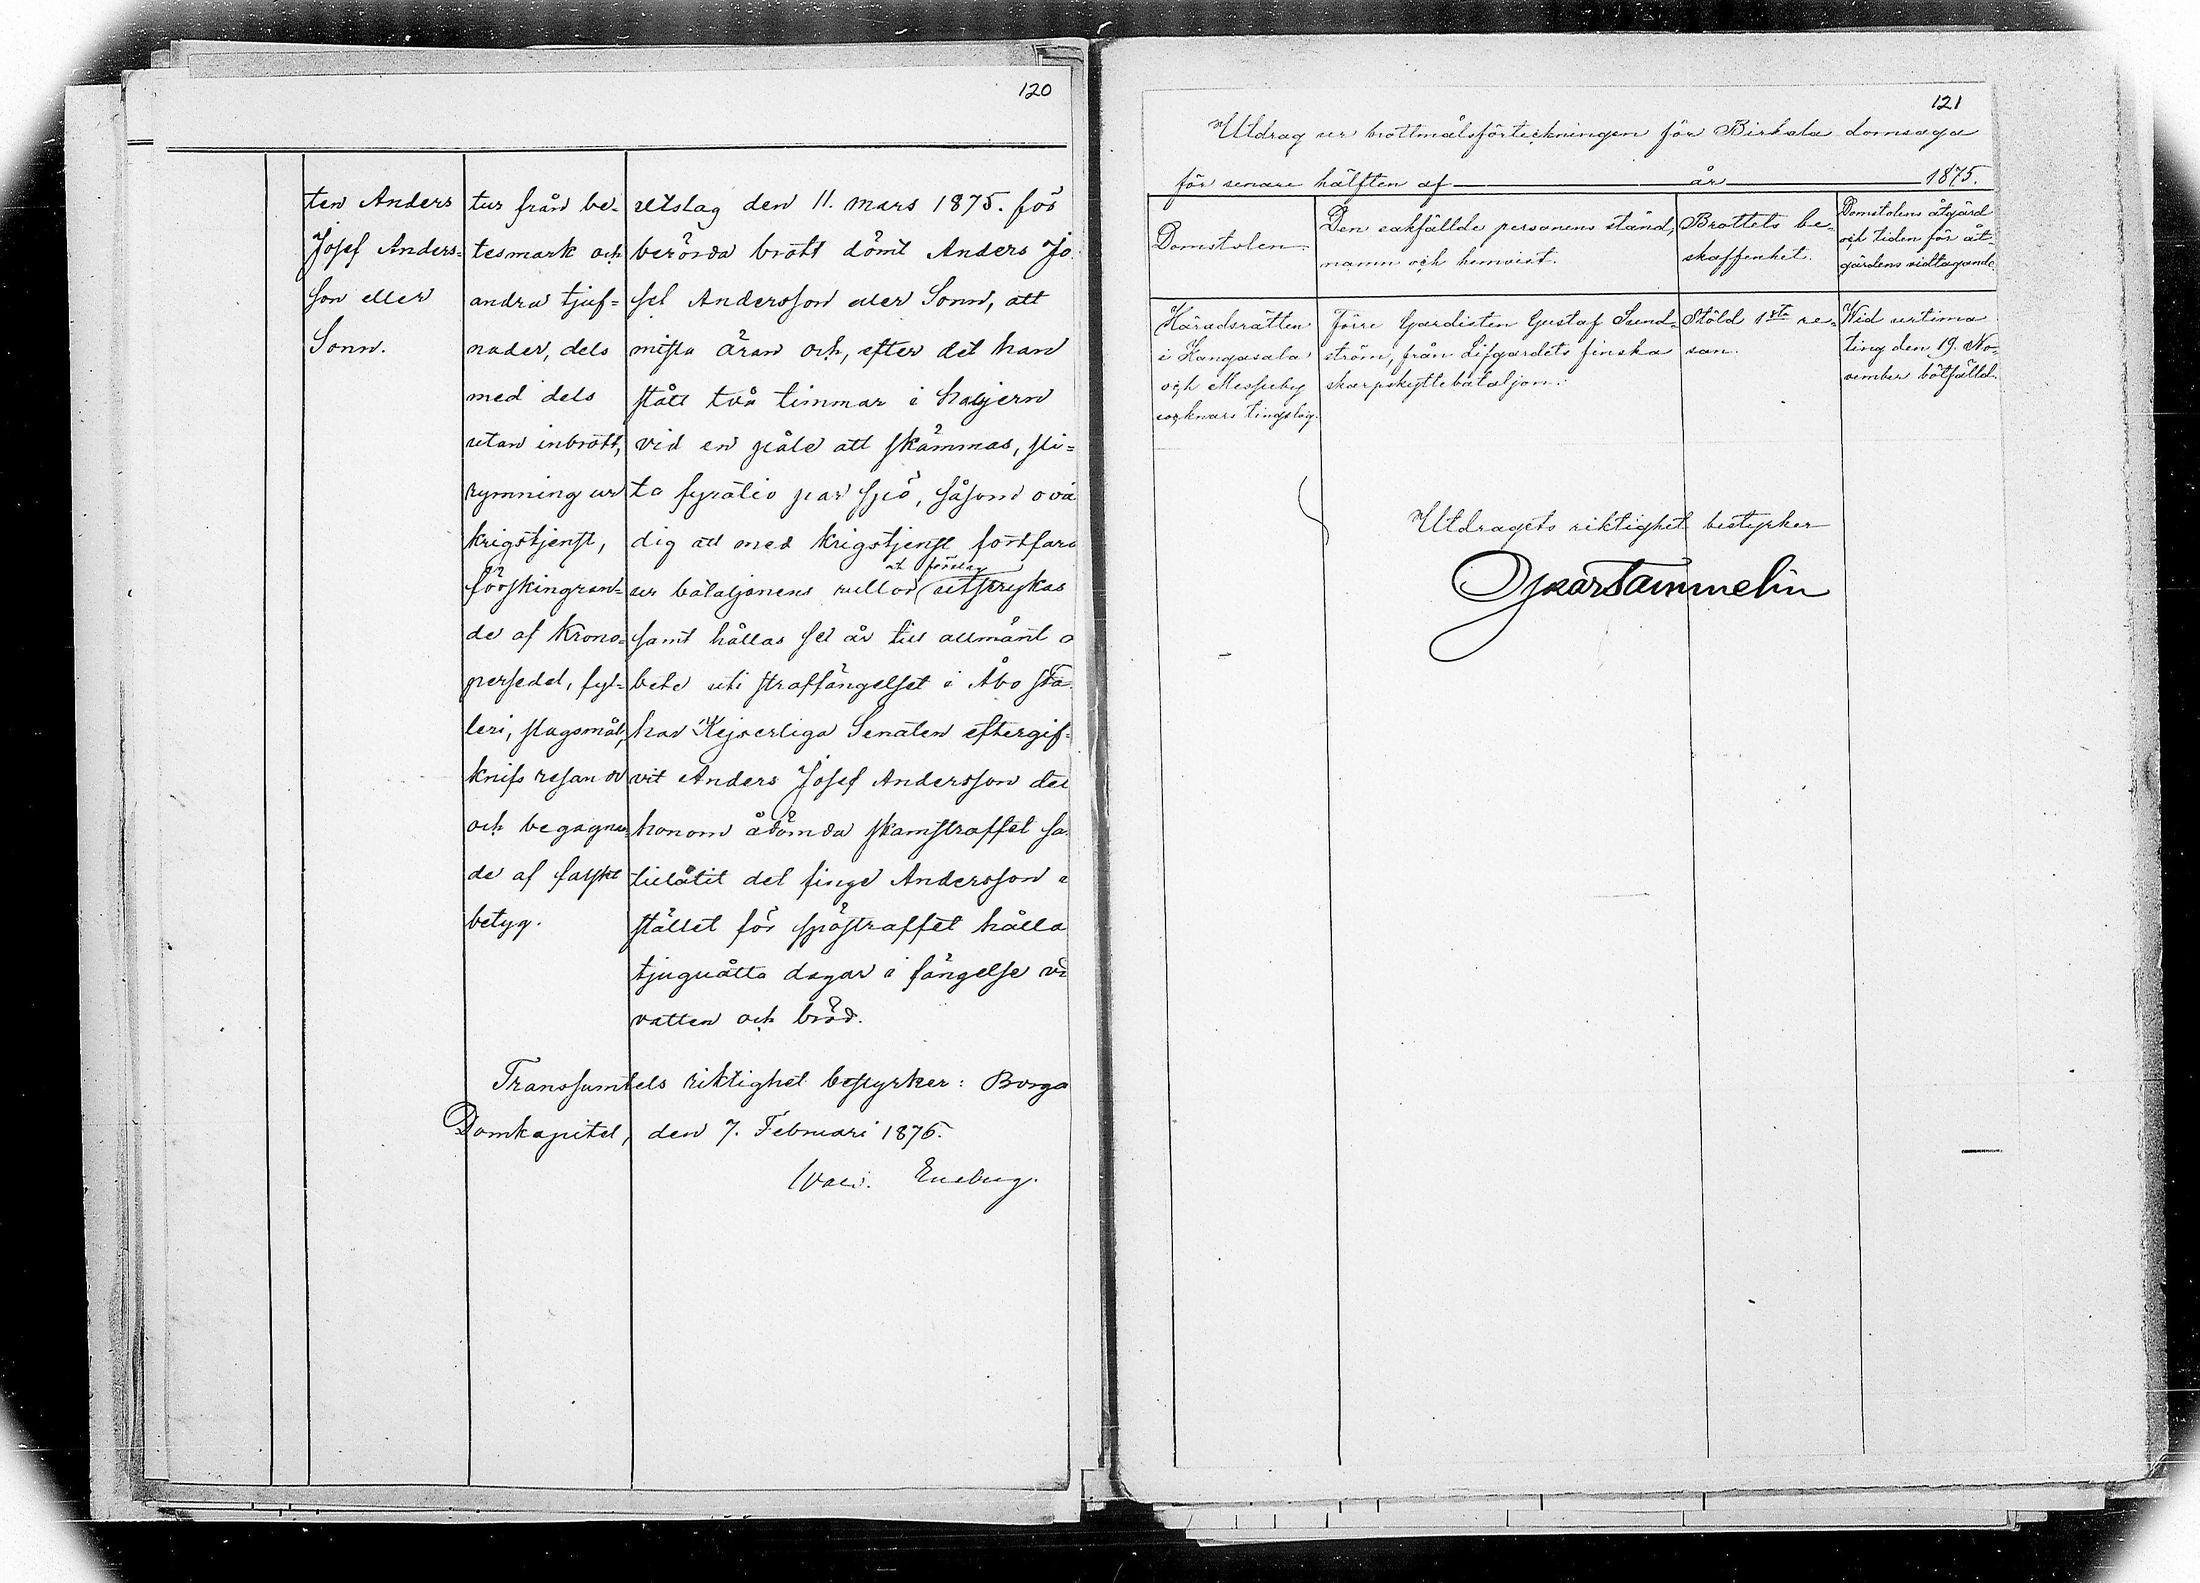 120
ten Anders
Josef Anders=
son eller
Sonn.
tur från be-
tesmark och
andra tjuf=
nader, dels
med dels
utan inbrott,
rymning ur
krigstjenst,
förskingran=
de af Krono=
persedel, fyl=
leri, slagsmål,
knifs resan
och begagnan-
de af falskt
betyg.
utslag den 11. mars 1875. för
berörda brott dömt Anders Jo
sef Andersson eller Sonn, att
mista äran och, efter det han
stått två timmar i halsjern
vid en påle att skämmas, sli=
ta fyratio par spö, såsom ovär
dig att med krigstjenst fortfara
ur bataljonens rullor utstrykas
samt hållas sex år till allmänt a
bete uti straffängelset i Åbo sta
har Kejserliga Senaten eftergif-
vit Anders Josef Andersson det
honom ådömda skamstraffet sa
tillåtit det finge Andersson i
stället för spöstraffet hålla
tjuguåtta dagar i fängelse vi
vatten och bröd.
Transsumtets riktighet bestyrker: Borga
Domkapitel, den 7. Februari 1876.
Wald. Eneberg.
121
Utdrag ur brottmålsförteckningen för Birkala domsaga
för senare hälften af år 1875.
Domstolen.
Den sakfällde personens stånd,
namn och hemvist.
Brottets be-
skaffenhet.
Domstolens åtgärd
och tiden för åt-
gärdens vidtagande.
Häradsrätten
i Kangasala
och Messuby
socknars tingslag.
Förre Gardisten Gustaf Sund-
ström, från Lifgardets finska
skarpskyttebataljon.
Stöld 1sta re-
san.
Wid urtima
ting den 19. No-
vember bötfälld.
Utdragets riktighet bestyrker
Oskar Tammelin